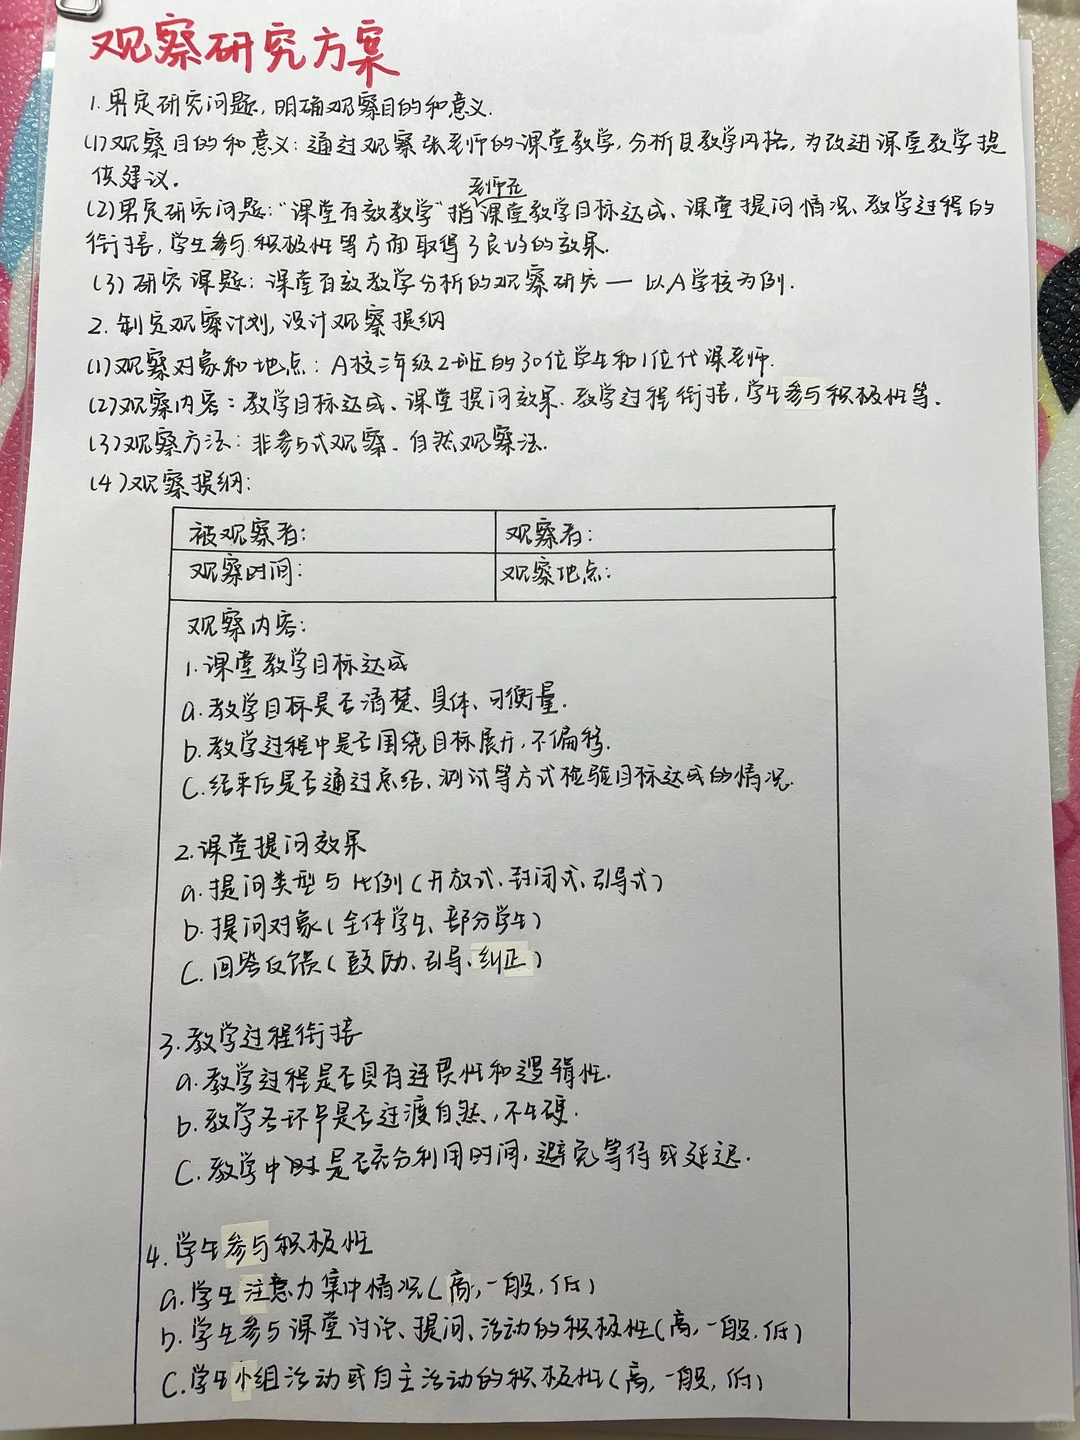 观察研究方案
1.界定研究问题,明确观察目的和意义.
(1)观察目的和意义:通过观察张老师的课堂教学,分析其教学风格,为改进课堂教学提
供建议.
老师在
(2)界定研究问题:"课堂有效教学"指课堂教学目标达成、课堂提问情况、教学过程的
衔接,学生参与积极性等方面取得了良好的效果.
(3)研究课题:课堂有效教学分析的观察研究—以A学校为例.
2.制定观察计划,设计观察提纲
(1)观察对象和地点:A校三年级2班的30位学生和1位代课老师.
(2)观察内容:教学目标达成、课堂提问效果、教学过程衔接,学生参与积极性等.
(3)观察方法:非参与式观察、自然观察法.
(4)观察提纲:
被观察者: 观察者:
观察时间: 观察地点:
观察内容:
1.课堂教学目标达成
a.教学目标是否清楚、具体、可衡量.
b.教学过程中是否围绕目标展开,不偏移.
C.结束后是否通过总结、测试等方式检验目标达成的情况.
2.课堂提问效果
a.提问类型与比例(开放式、封闭式、引导式)
b.提问对象(全体学生、部分学生)
C.回答反馈(鼓励、引导、纠正)
3.教学过程衔接
a.教学过程是否具有连贯性和逻辑性.
b.教学各环节是否过渡自然,不生硬.
C.教学中时是否充分利用时间,避免等待或延迟.
4.学生参与积极性
a.学生注意力集中情况(高,一般,低)
b.学生参与课堂讨论、提问、活动的积极性(高,一般.低)
C.学生小组活动或自主活动的积极性(高,一般,低)